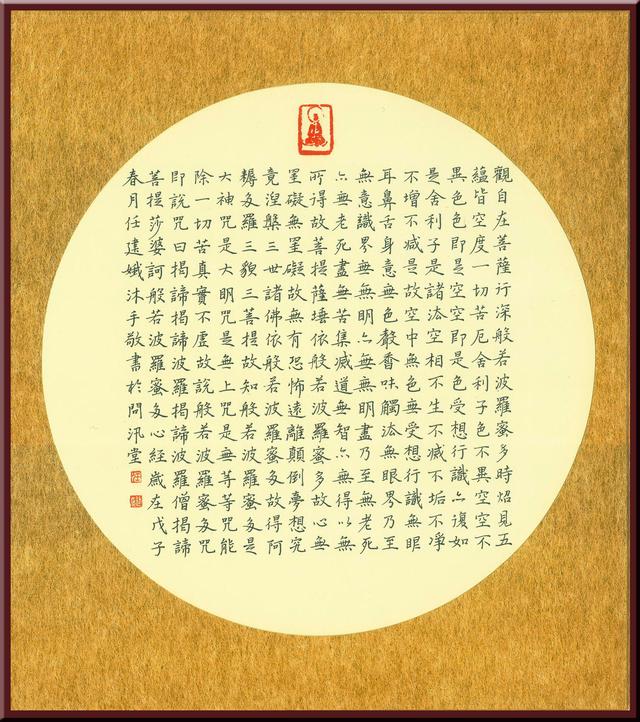 觀自在菩薩行深般若波羅蜜多時炤見五
蘊皆空度一切苦厄舍利子色不異空空不
異色色即是空空即是色受想行識亦復如
是舍利子是諸法空相不生不滅不垢不淨
不增不減是故空中無色無受想行識無眼
耳鼻舌身意無色聲香味觸法無眼界乃至
無意識界無無明亦無無明盡乃至無老死
亦無老死盡無苦集滅道無智亦無得以無
所得故菩提薩埵依般若波羅蜜多故心無
罣礙無罣礙故無有恐怖遠離顛倒夢想究
竟涅槃三世諸佛依般若波羅蜜多故得阿
耨多羅三藐三菩提故知般若波羅蜜多是
大神咒是大明咒是無上咒是無等等咒能
除一切苦真實不虛故說般若波羅蜜多咒
即說咒曰揭諦揭諦波羅揭諦波羅僧揭諦
菩提莎婆訶般若波羅蜜多心經歲在戊子
春月任建娥沐手敬書於問汛堂